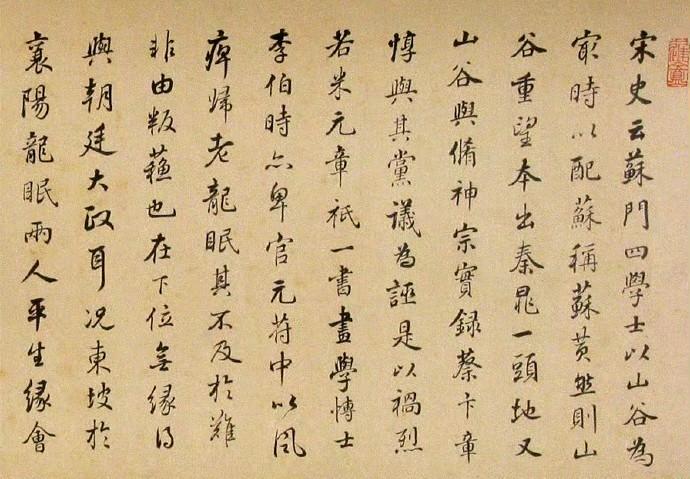 宋史云蘇門四學士以山谷為
最時以配蘇稱蘇黄然則山
谷重望本出秦晁一頭地又
山谷與脩神宗實録蔡卞章
惇與其黨議為誣是以禍烈
若米元章祇一書畫學博士
李伯時亦卑官元符中以風
痺歸老龍眠其不及於難
非由叛蘓也在下位無缘得
與朝廷大政耳况東坡於
襄陽龍眠兩人平生缘會